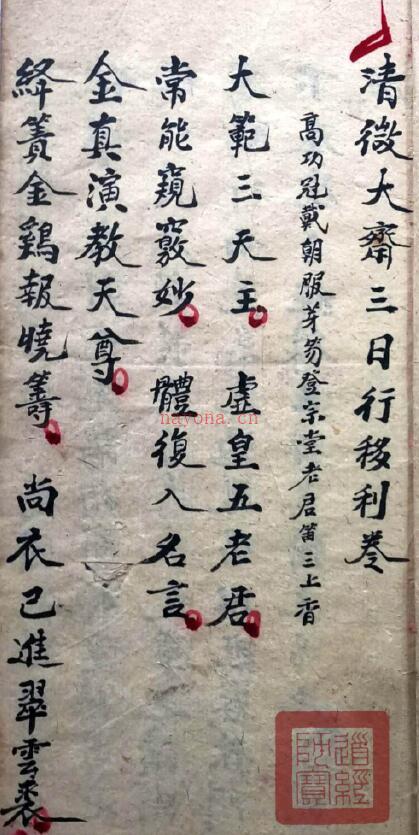 清微大齋三日行移利卷
高功冠戴朝服芽笏登宗堂老君笛三上香
大範三天主 虛皇五老君
常能窺竅妙 體復入名言
金真演教天尊
絳簀金鷄報曉籌 尚衣已進翠雲裘
nayona.cn
道經師寶